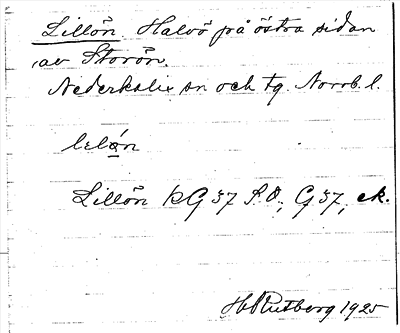 Lillön. Halvö på östra sidan
av Storön.
Nederkalix sn och tg. Norrb. l.
Lillön kG 37 S.O., G 37, ek.
H Rutberg 1925